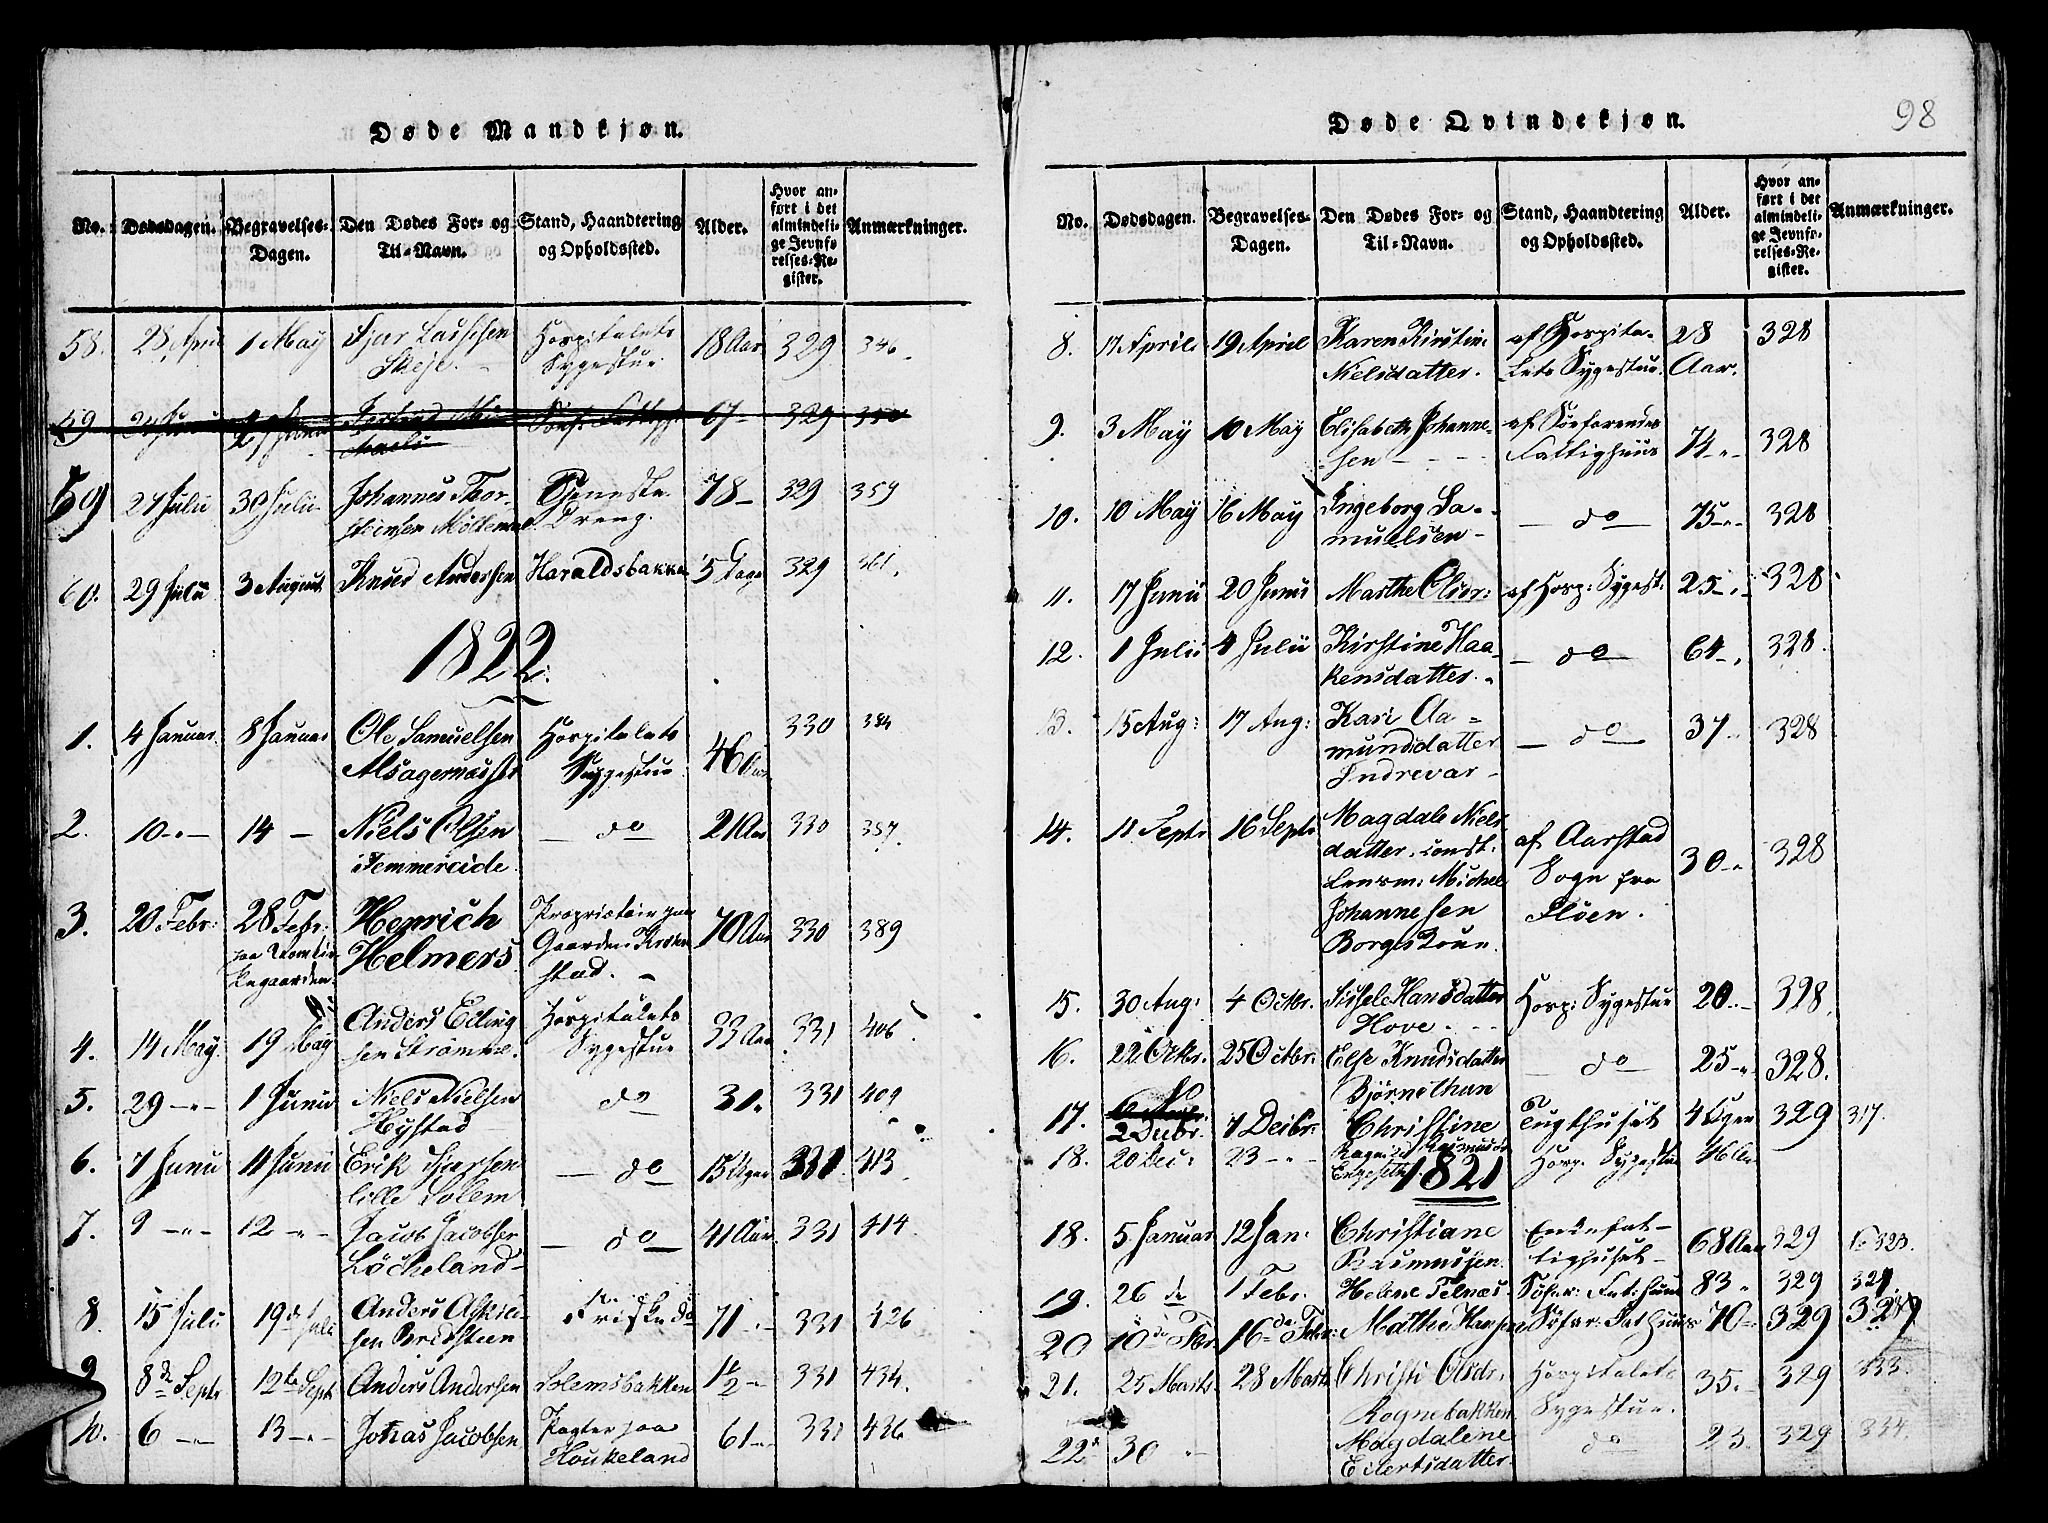 98
Døde Mandkjøn.
No. Dødsdagen. Begravelses-Dagen. Den Dødes For- og Til-Navn. Stand, Haandtering og Opholdssted. Alder. Hvor anført i det almindelige Jevnførelses-Register. Anmærkninger.
58. 28 April 1 May Hospitalets Sygestue 18 Aar 329 346.
59. 329
59 27 Julii 30 Julii Johannes Thor- 78 329 359
60. 29 Julii 3 August Knud Andersen Haraldsbakken 5 Dage 329 361.
1822.
1. 4 Januar. 8 Januar Ole Samuelsen Hospitalets Sygestue 46 Aar 330 384
2. 10 -"- 14 - Niels Olsen - do - 21 Aar 330 387.
3. 20 Febr: 28 Febr: Henrich Helmers Proprietair paa Gaarden Kronstad. 70 Aar 330 389
4. 14 May. 19 May Anders Elling-
sen Strømme. Hospitalets Sygestue 33 Aar 331 406
5. 29 -"- 1 Junii Niels Nielsen
Hystad do 31. 331 409
6. 7 Junii 11 Junii Erik
lille Solem - do 331 413
7. 9 -"- 12 -"- Jacob Jacobsen
Løcheland - - do - 41 Aar. 331 414.
8. 15 Julii 19de Julii Anders 71 -"- 331 426
9 8de Septr 12te Septr Anders Andersen Solemsbakken 1½ -"- 331 434.
10. 6 -"- 13 -"- Jonas Jacobsen Pagter paa
Houkeland 61 -"- 331 436
Døde Qvindekjøn.
No. Dødsdagen. Begravelses-Dagen. Den Dødes For- og Til-Navn. Stand, Haandtering og Opholdssted. Alder. Hvor anført i det almindelige Jevnførelses-Register. Anmærkninger.
8. 17 April. 19 April Karen Kirstine
Nielsdatter. af Hospita-
lets Sygestue. 28
Aar. 328
9. 3 May 10 May Elisabeth Johanne-
sen - af Søefarendes
Fattighuus 74 -"- 328
10. 10 May 16 May Ingeborg Sa-
muelsen - - do - 75 -"- 328
11. 17 Junii 20 Junii Marthe Olsdr: af Hosp: Sygest: 25 -"- 328
12. 1 Julii 4 Julii Kirstine Haa-
kensdatter. - do - 64 - 328.
13. 15 Aug: 17 Aug: Kari Aa-
mundsdatter
Indrevar - - do - 37 328
14. 11 Septr 16 Septr Magdale Niels
datter. const.
Lensm: Michel
Johannesen
af Aarstad
Sogn fra
Fløen. 30 -"- 328
15. 30 Aug: 4 Octbr. Sissele Hansdatter
Hove. Hosp: Sygestue 20 328.
16. 22 Octbr. 25 Octbr: Else Knudsdatter
Bjørnethun - do 25 -"- 328.
17. 2 Decbr. 7 Decbr: Christine Tugthuset 4 Uger 329 317.
18. 20 Dec: 23 -"- Hosp. Sygestue
1821
18. 5 Januar 12 Jan: Christiane
Rasmussen. Enkefat-
tighuset - 68 Aar 329 323.
19. 26 de 1 Febr. Helene Telnæs Søfar: Fat: huus 83 " 329
20 10de Fbr. 16de Febr: Mathe Hansen Søfar: Fat: huus 70 329
21. 25 Marts 28 Marts Christi Olsdr.
Rognebakken Hospitalets
Sygestue. 35. 329 333.
22 30 " Magdalene
Eilertsdatter. do 23. 329 334.